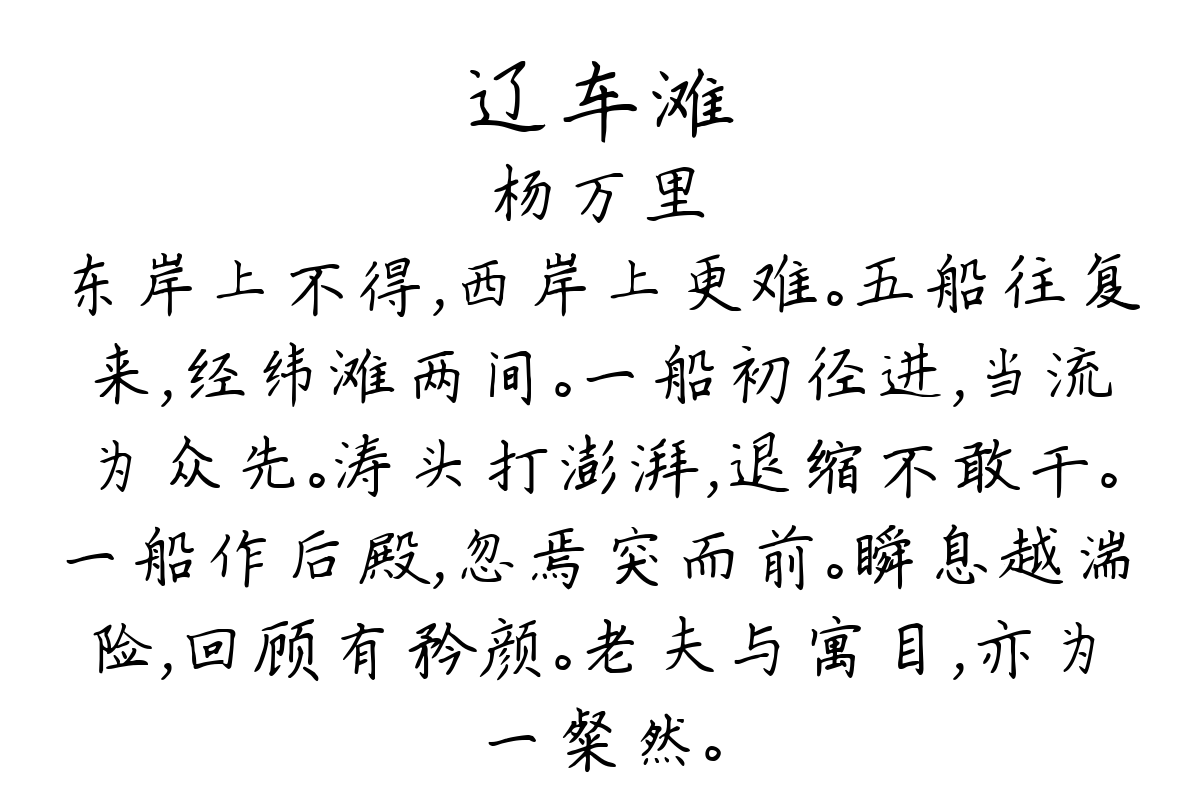 辽车滩
杨万里
东岸上不得,西岸上更难。五船往复
来,经纬滩两间。一船初径进,当流
为众先。涛头打澎湃,退缩不敢干。
一船作后殿,忽焉突而前。瞬息越湍
险,回顾有矜颜。老夫与寓目,亦为
一粲然。